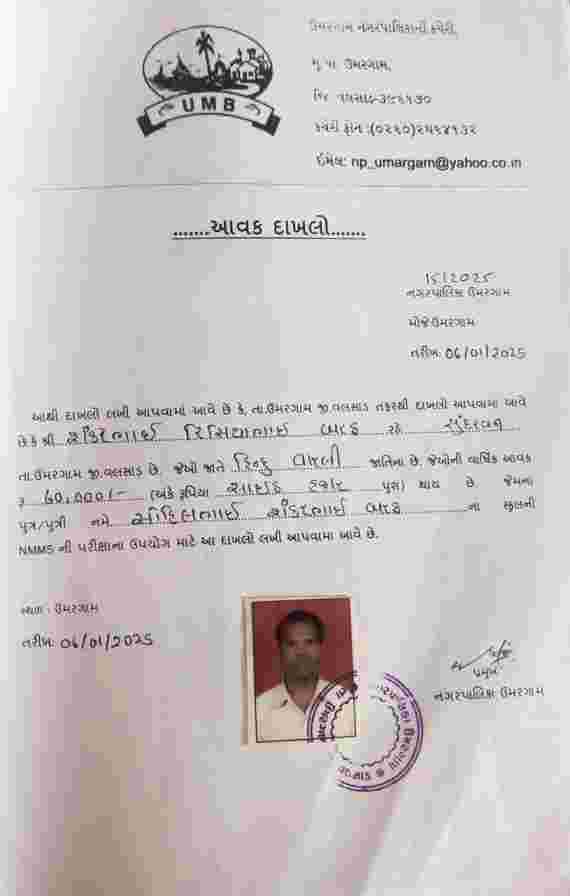 UMB
ઉમરગામ નગરપાલિકાની કચેરી,
મુ.પો. ઉમરગામ,
જિ. વલસાડ-૩૯૬૧૭૦
કચેરી ફોન :(૦૨૬૦)૨૫૬૪૧૩૨
ઈમેલ: np_umargam@yahoo.co.in
.......આવક દાખલો.......
15/2025
નગરપાલિકા ઉમરગામ
મોજે.ઉમરગામ
તરીખ: 06/01/2025
આથી દાખલો લખી આપવામાં આવે છે કે, તા.ઉમરગામ જી.વલસાડ તરફથી દાખલો આપવામાં આવે
છે.કે શ્રી શંકરભાઈ રહે સુંદરવન
તા.ઉમરગામ જી.વલસાડ છે. જેઓ જાતે હિન્દુ વારલી જાતિના છે. જેઓની વાર્ષિક આવક
રૂ 60,000/- (અંકે રૂપિયા સાઈઠ હજાર પુરા) થાય છે. જેમના
પુત્ર/પુત્રી નામે શંકરભાઈ ના સ્કુલની
NMMS ની પરીક્ષાના ઉપયોગ માટે આ દાખલો લખી આપવામાં આવે છે.
સ્થળ : ઉમરગામ
તરીખ: 06/01/2025
પ્રમુખ
નગરપાલિકા ઉમરગામ